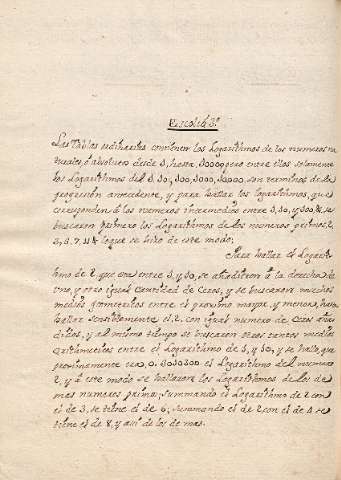 Escolio 3º
Las Tablas ordinarias contienen los Logarithmos de los numeros na
turales, ó absolutos desde 1, hasta, 10000 pero entre ellos solamente
los Logarithmos del 1, 10, 100, 1000, 10000, son terminos de la
progresion antecedente, y para hallar los logarithmos, que
corresponden á los numeros intermedios entre 1, 10, y 100, &, se
buscaron primero los Logarithmos de los numeros primos, 2,
3, 5, 7, 11 & lo que se hizo de este modo;
Para hallar el Logarit
hmo de 2 que está entre 1, y 10, se añadieron á la derecha de
uno, y otro igual cantidad de Ceros, y se buscaron muchos
medios geometricos entre el proximo mayor, y menor, hasta
hallar sensiblemente el 2, con igual numero de Ceros aña
didos, y al mismo tiempo se buscaron otros tantos medios
arithmeticos entre el Logarithmo de 1, y 10, y se halló, que
proximamente era, 0. 3010300 el Logarithmo del numero
2, y á este modo se hallaron los Logarithmos de los de
mas numeros primos; summando el Logarithmo de 2 con
el de 3, se tiene el de 6; summando el de 2 con el de 4 se
tiene el de 8, y asi de los de mas.